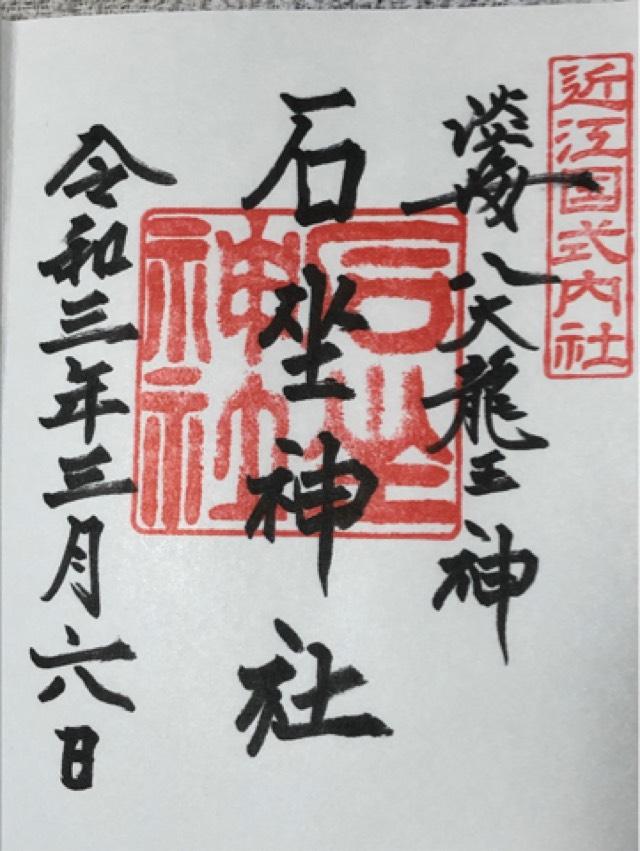 近江国式内社
淡海八大龍王神
石坐神社
石坐神社
令和三年三月六日